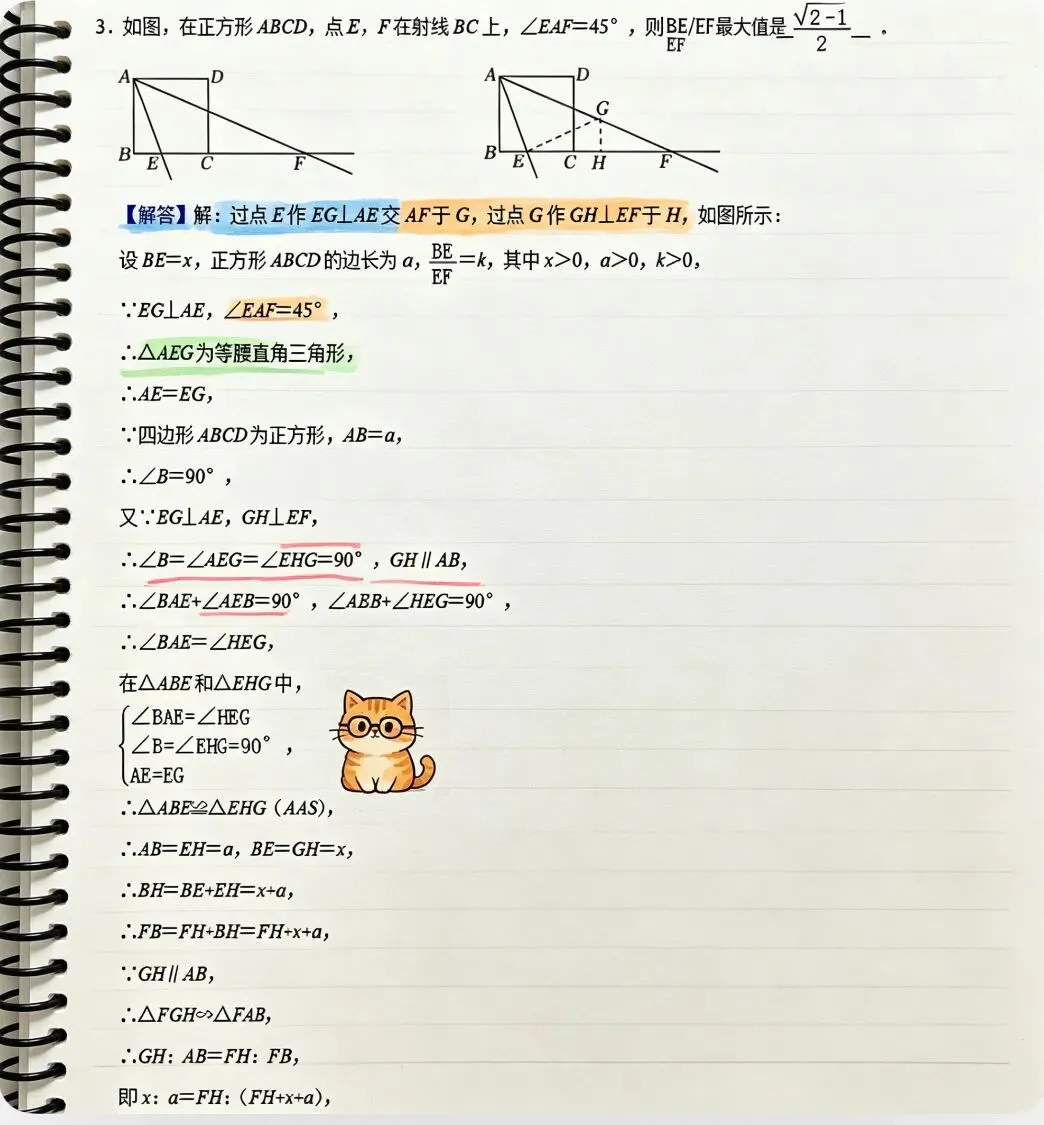 3. 如图，在正方形 ABCD，点 E，F 在射线 BC 上，∠EAF=45°，则 BE/EF /EF 最大值是 (√2-1)/2 。
A D
B E C F
A D
G
B E C H F
【解答】解：过点 E 作 EG⊥AE 交 AF 于 G，过点 G 作 GH⊥EF 于 H，如图所示：
设 BE=x，正方形 ABCD 的边长为 a，BE/EF=k，其中 x>0，a>0，k>0，
∵EG⊥AE，∠EAF=45°，
∴△AEG 为等腰直角三角形，
∴AE=EG，
∵四边形 ABCD 为正方形，AB=a，
∴∠B=90°，
又∵EG⊥AE，GH⊥EF，
∴∠B=∠AEG=∠EHG=90°，GH∥AB，
∴∠BAE+∠AEB=90°，∠ABB+∠HEG=90°，
∴∠BAE=∠HEG，
在△ABE 和△EHG 中，
∠BAE=∠HEG
∠B=∠EHG=90°，
AE=EG
∴△ABE≌△EHG（AAS），
∴AB=EH=a，BE=GH=x，
∴BH=BE+EH=x+a，
∴FB=FH+BH=FH+x+a，
∵GH∥AB，
∴△FGH∽△FAB，
∴GH：AB=FH：FB，
即 x：a=FH：(FH+x+a)，